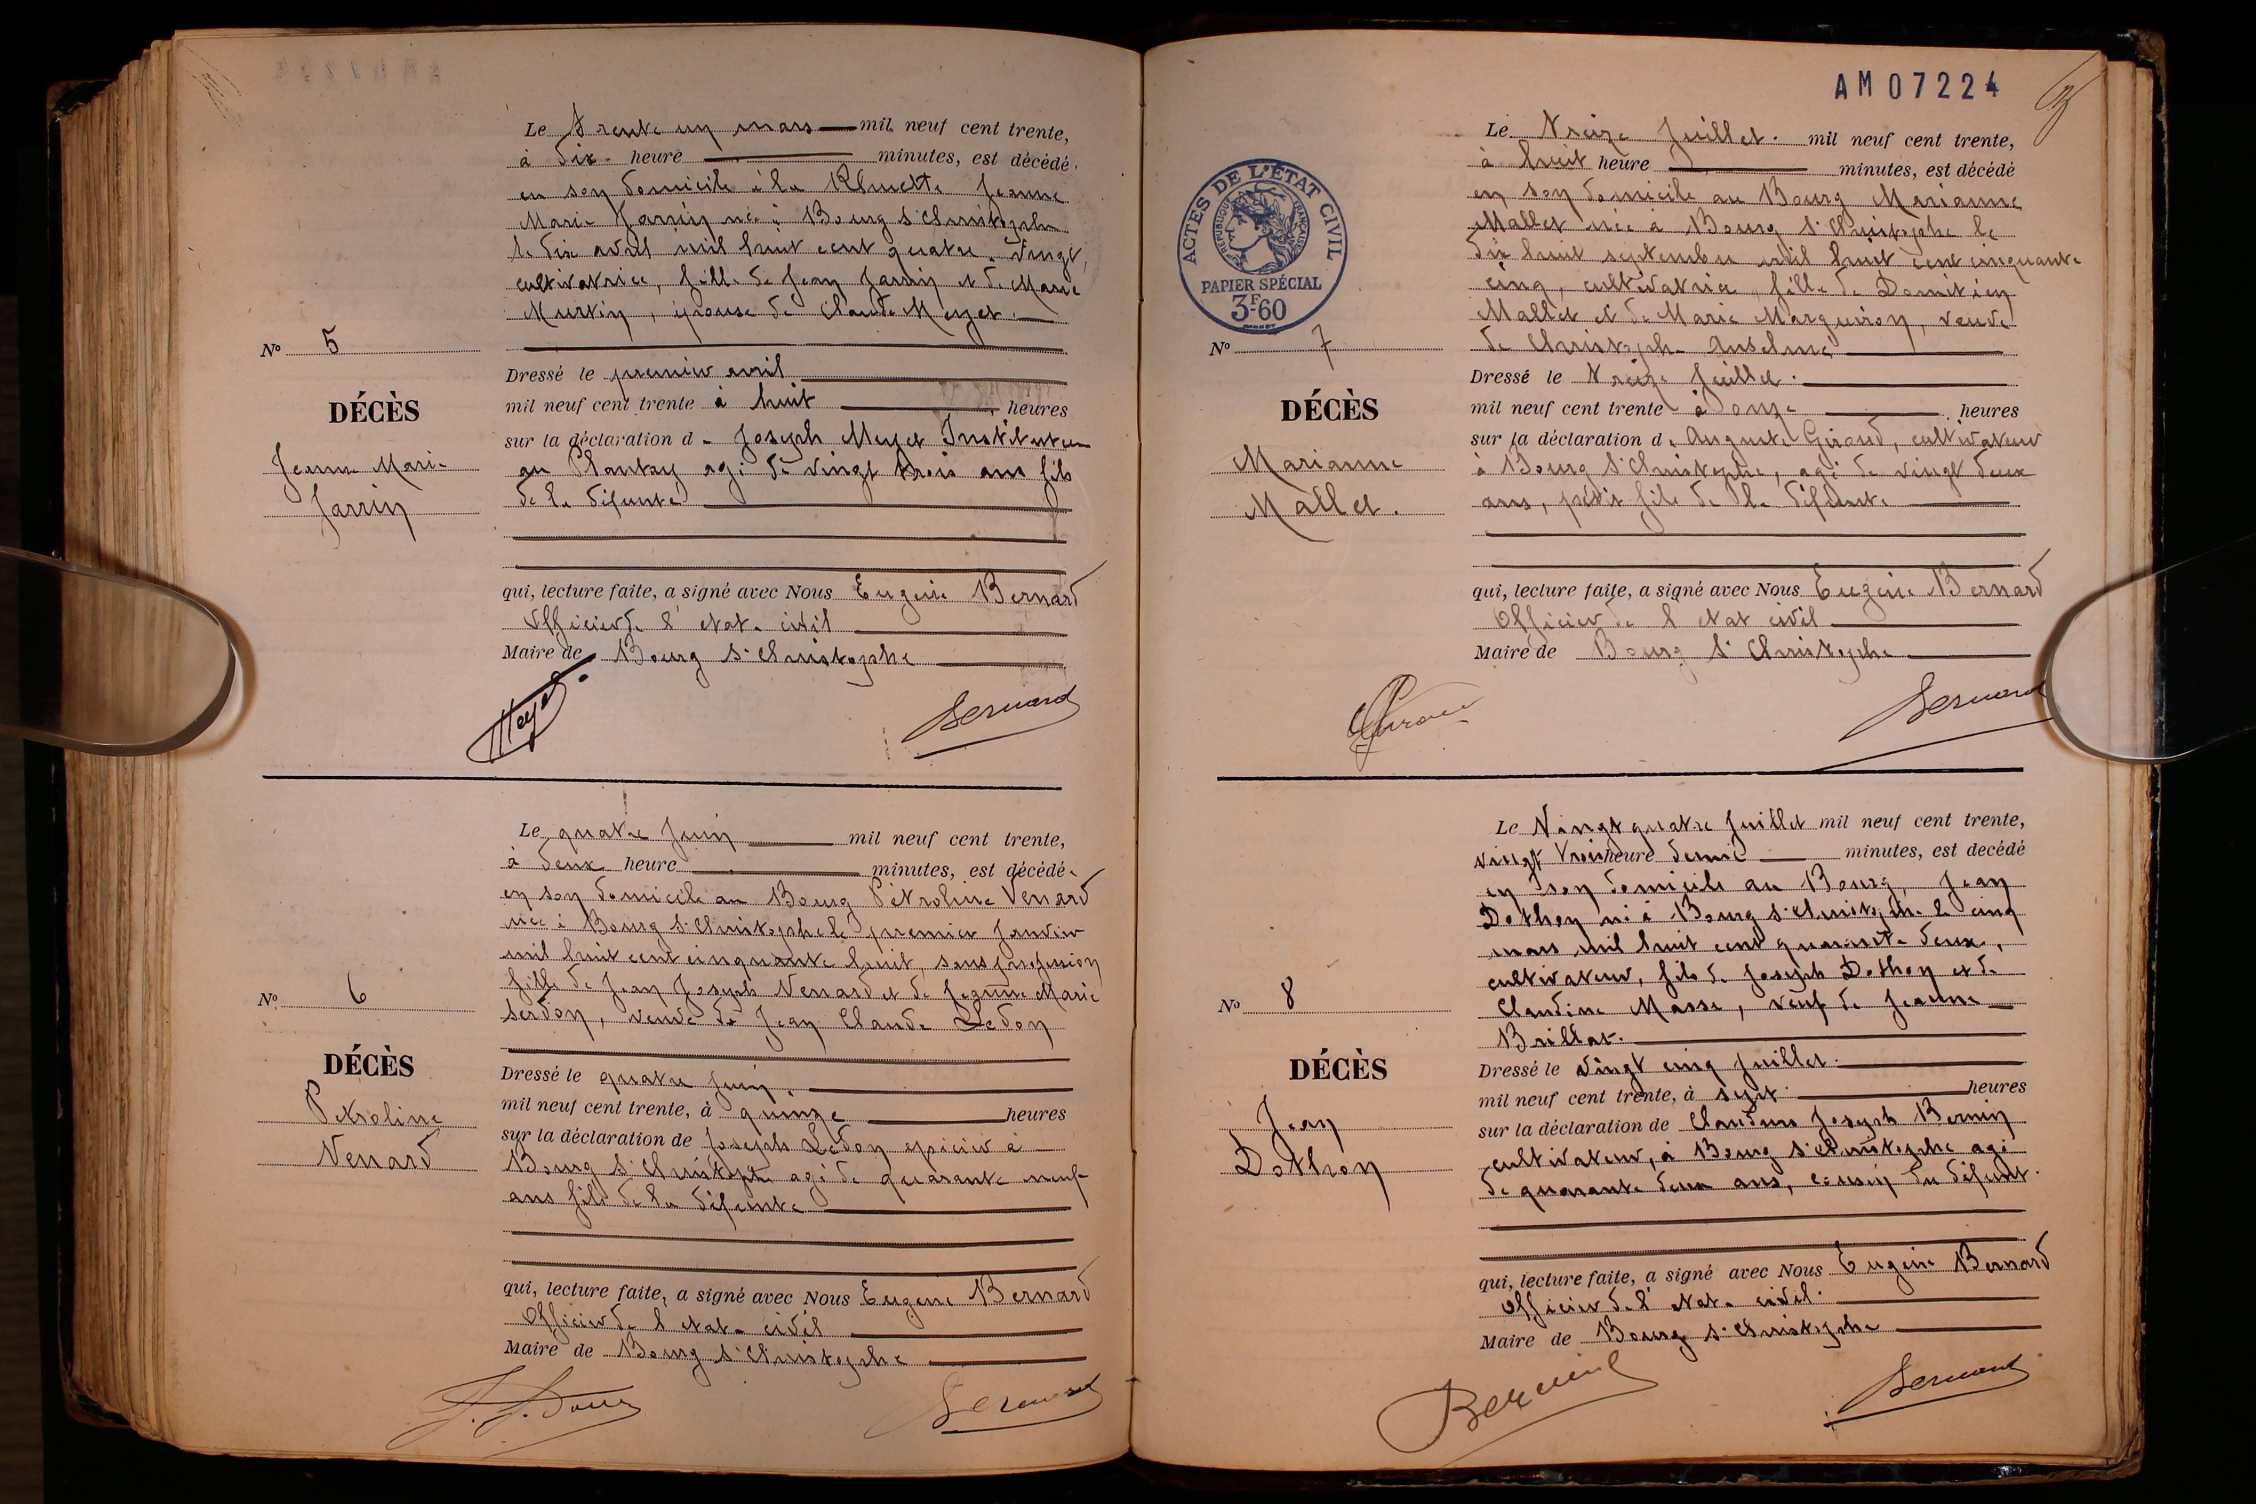 Le Trente un mars mil neuf cent trente,
à dix heure minutes, est décédée
en son domicile à la Jeanne
Marie Jarrin née à Bourg St Christophe
le dix avril mil huit cent quatre vingt,
cultivatrice, fille de Jean Jarrin et de Marie
Murtin, épouse de Claude Meyet.
No 5
Dressé le premier avril
mil neuf cent trente à huit heures
DÉCÈS
sur la déclaration de Joseph Meyet Instituteur
Jeanne Marie
au Plantay agé de vingt trois ans fils
Jarrin
de la défunte
qui, lecture faite, a signé avec Nous Eugène Bernard
Officier de l'état civil
Maire de Bourg St Christophe
Meyet
Bernard
Le quatre Juin mil neuf cent trente,
à deux heure minutes, est décédée
en son domicile au Bourg Pétroline Venard
née à Bourg St Christophe le premier janvier
mil huit cent cinquante huit, sans profession
fille de Jean Joseph Venard et de Jeanne Marie
Serdon, veuve de Jean Claude Ledon
No 6
DÉCÈS
Petroline
Venard
Dressé le quatre Juin.
mil neuf cent trente, à quinze heures
sur la déclaration de Joseph Ledon epicier à
Bourg St Christophe agé de quarante neuf
ans fils de la défunte
qui, lecture faite, a signé avec Nous Eugène Bernard
Officier de l'état civil
Maire de Bourg St Christophe
Bernard
AM07224
ACTES DE L'ÉTAT CIVIL
RÉPUBLIQUE FRANÇAISE
PAPIER SPÉCIAL
3F60
Le Treize Juillet. mil neuf cent trente,
à huit heure minutes, est décédé
en son domicile au Bourg Marianne
Mallet née à Bourg St Christophe le
dix huit septembre mil huit cent cinquante
cinq, cultivatrice, fille de Domitien
Mallet et de Marie Marguiron, veuve
de Christophe Anselme
No 7
DÉCÈS
Marianne
Mallet.
Dressé le Treize Juillet.
mil neuf cent trente à onze heures
sur la déclaration de Auguste Giraud, cultivateur
à Bourg St Christophe, agé de vingt deux
ans, petit fils de la défunte
qui, lecture faite, a signé avec Nous Eugène Bernard
Officier de l'état civil
Maire de Bourg St Christophe
Giraud
Bernard
Le Vingt quatre Juillet mil neuf cent trente,
vingt trois heure demie minutes, est decédé
en son domicile au Bourg, Jean
Dothon né à Bourg St Christophe le cinq
mars mil huit cent quarante deux,
cultivateur, fils de Joseph Dothon et de
Claudine Masse, veuf de Jeanne
Brillat.
No 8
DÉCÈS
Jean
Dothon
Dressé le vingt cinq Juillet.
mil neuf cent trente, à sept heures
sur la déclaration de Claudius Joseph Bernin
cultivateur, à Bourg St Christophe agé
de quarante deux ans, cousin du défunt.
qui, lecture faite, a signé avec Nous Eugène Bernard
Officier de l'état civil.
Maire de Bourg St Christophe
Bernard